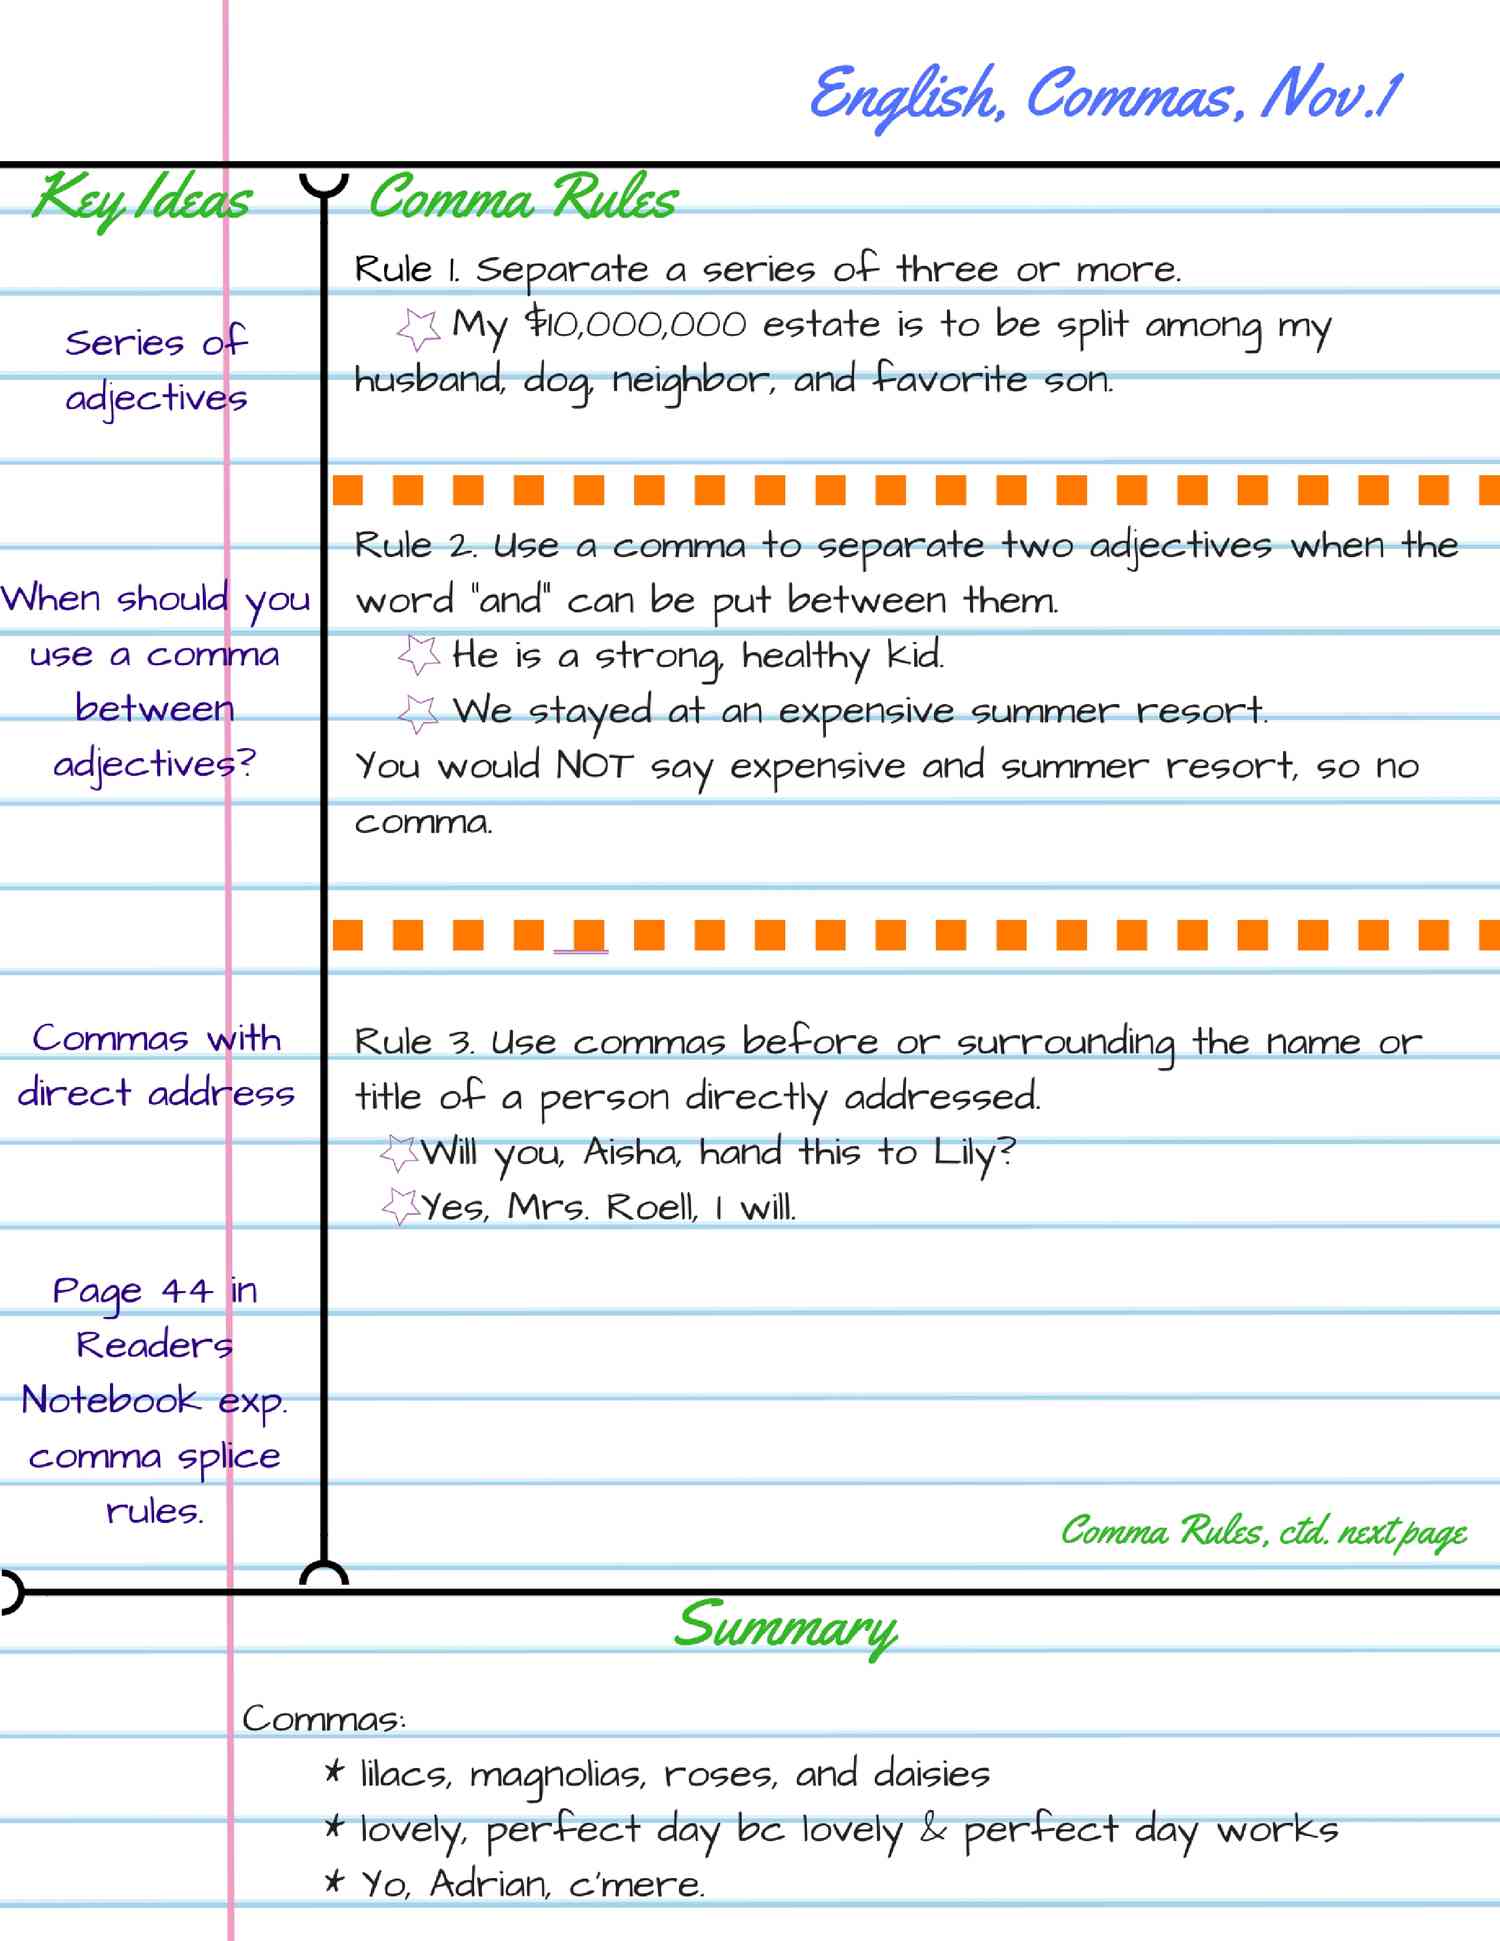 English, Commas, Nov.1
Key Ideas
Comma Rules
Series of
adjectives
When should you
use a comma
between
adjectives?
Commas with
direct address
Page 44 in
Readers
Notebook exp.
comma splice
rules.
Rule 1. Separate a series of three or more.
My $10,000,000 estate is to be split among my
husband, dog, neighbor, and favorite son.
Rule 2. Use a comma to separate two adjectives when the
word "and" can be put between them.
He is a strong, healthy kid.
We stayed at an expensive summer resort.
You would NOT say expensive and summer resort, so no
comma.
Rule 3. Use commas before or surrounding the name or
title of a person directly addressed.
Will you, Aisha, hand this to Lily?
Yes, Mrs. Roell, I will.
Comma Rules, ctd. next page
Summary
Commas:
* lilacs, magnolias, roses, and daisies
* lovely, perfect day bc lovely & perfect day works
* Yo, Adrian, c'mere.